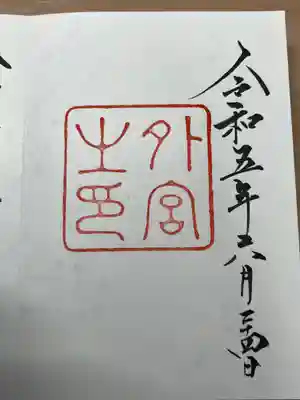 令和五年六月二十四日
外宮
之印